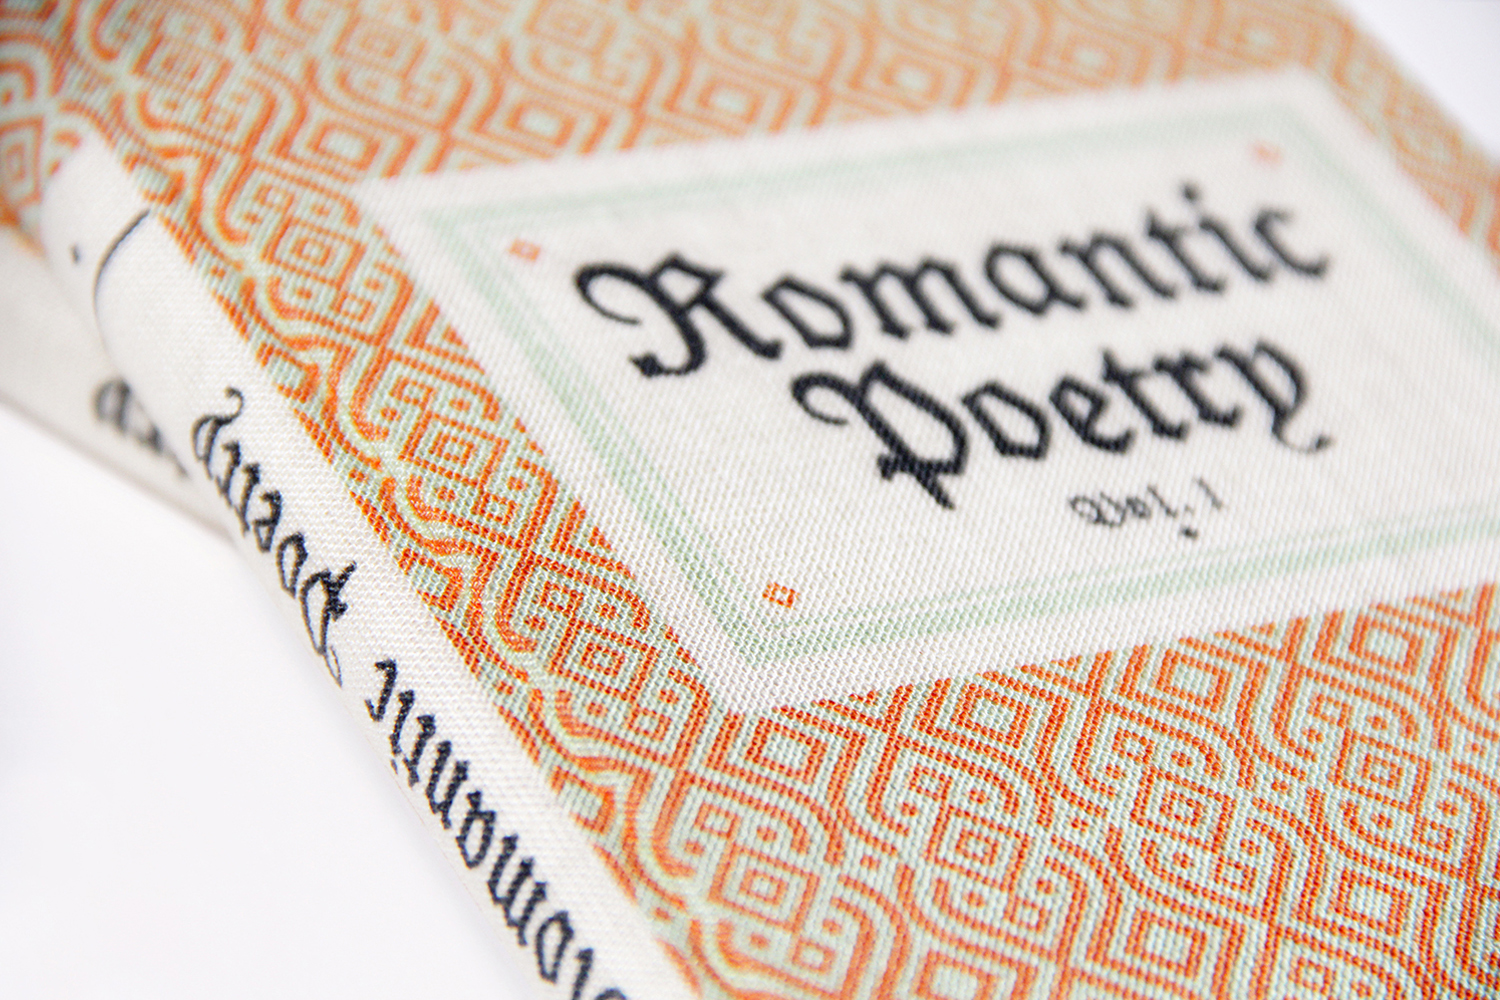 Romantic
Poetry
Vol. 1
Romantic Poetry